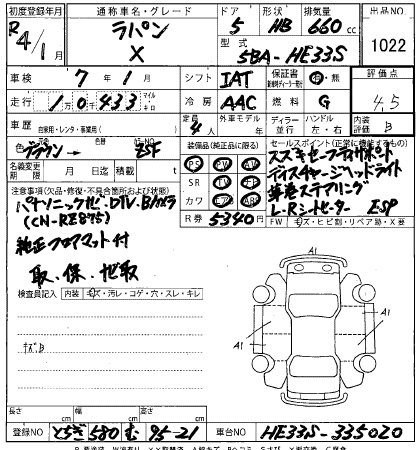 初度登録年月 通称車名・グレード ドア 形状 排気量 出品NO
R4/1 ラパン X 5 HB 660cc 1022
型式 5BA-HE33S
車検 7年1月 シフト IAT 保証書 有・無 評価点
走行 1万0千433 マイル キロ 冷房 AAC 燃料 G 4.5
車歴 自家用・レンタ・事業用( ) 定員 4人 外車モデル 年 ディーラー 並行 ハンドル 左・右 内装 B
色 ブラウン → 色替 カラーNO ZSF
装備品(純正品に限る) PS PW AW SR TV カワ エアB ナビ
セールスポイント(正常に機能するもの)
スズキセーフティサポート
ディスチャージヘッドライト
革巻ステアリング
L-Rシートヒーター ESP
名義変更期限 月 日 積載 t
R券 5340円
FW キズ・ヒビ割・リペア跡・X要
注意事項(欠品・修復・不具合箇所または状態)
パナソニックナビ、DTV、Bカメラ
(CN-RZ875)
純正フロアマット付
取・保・ナビ取
検査員記入 内装 キズ・汚レ・コゲ・穴・スレ・キレ
キズB
A1
A1
A1
長さ cm 幅 cm 高さ cm
登録NO とちぎ 580 む 95-21 車台NO HE33S-335020